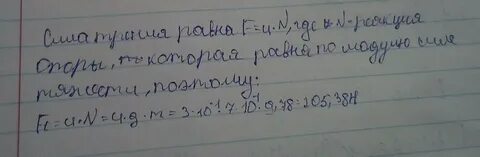 Сила трения равна F=μ·N, где N-реакция
опоры, которая равна по модулю силе
тяжести, поэтому:
F=μ·N=μ·g·m=3·10⁻¹·7·10¹·9,78=205,38Н